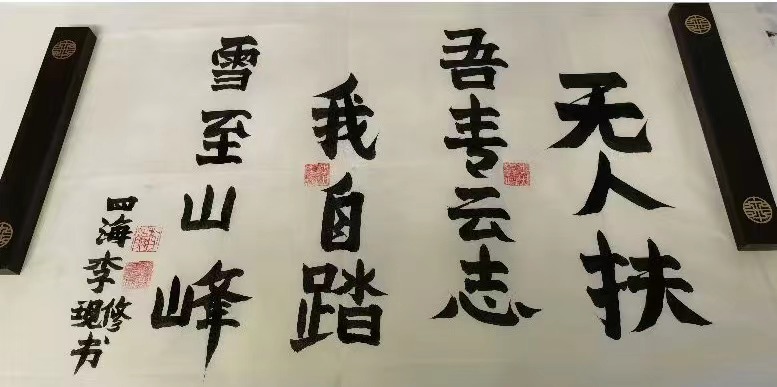 无人扶
吾青云志
我自踏
雪至山峰
四海李修现书